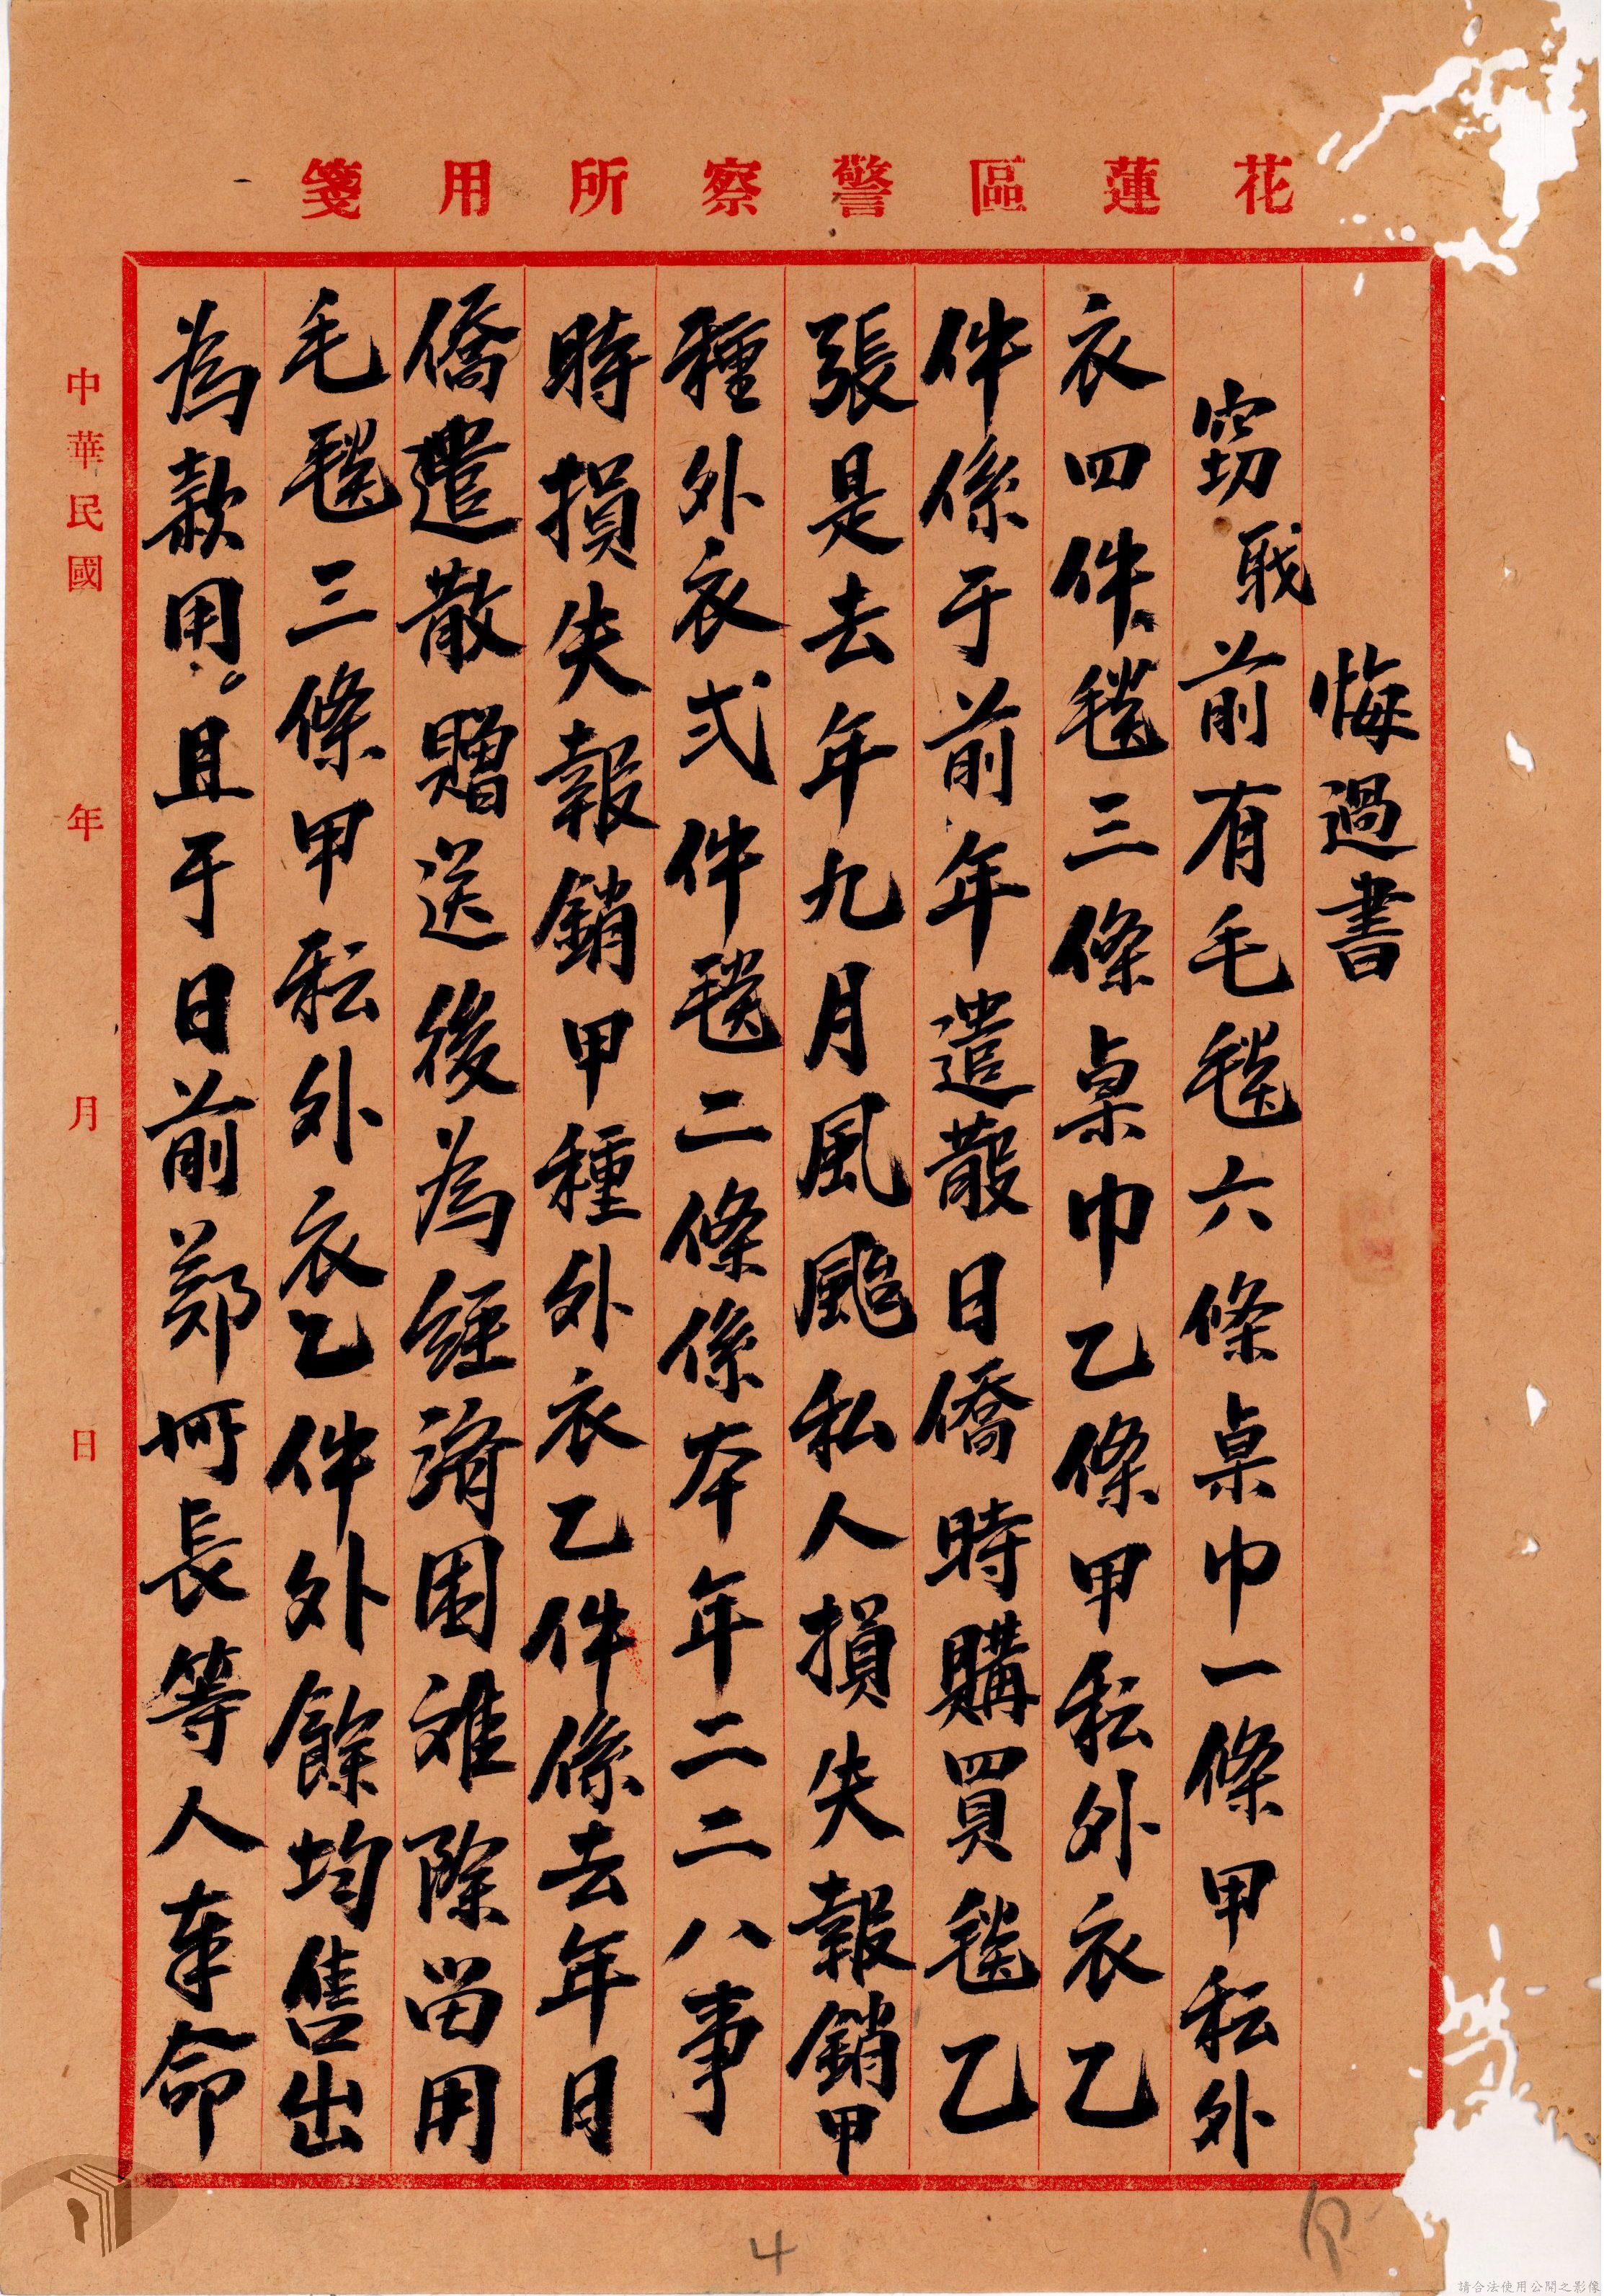 花蓮區警察所用箋
悔過書
窃职前有毛毯六條桌巾一條甲种外
衣四件毯三條桌巾乙條甲种外衣乙
件係于前年遣散日僑時購買毯乙
張是去年九月風颱私人損失報銷甲
種外衣弍件毯二條係本年二二八事
時損失報銷甲種外衣乙件係去年日
僑遣散贈送後為經濟困难除留用
毛毯三條甲种外衣乙件外餘均售出
為款用。且于日前鄭所長等人奉命
中華民國 年 月 日
4
請合法使用公開之影像